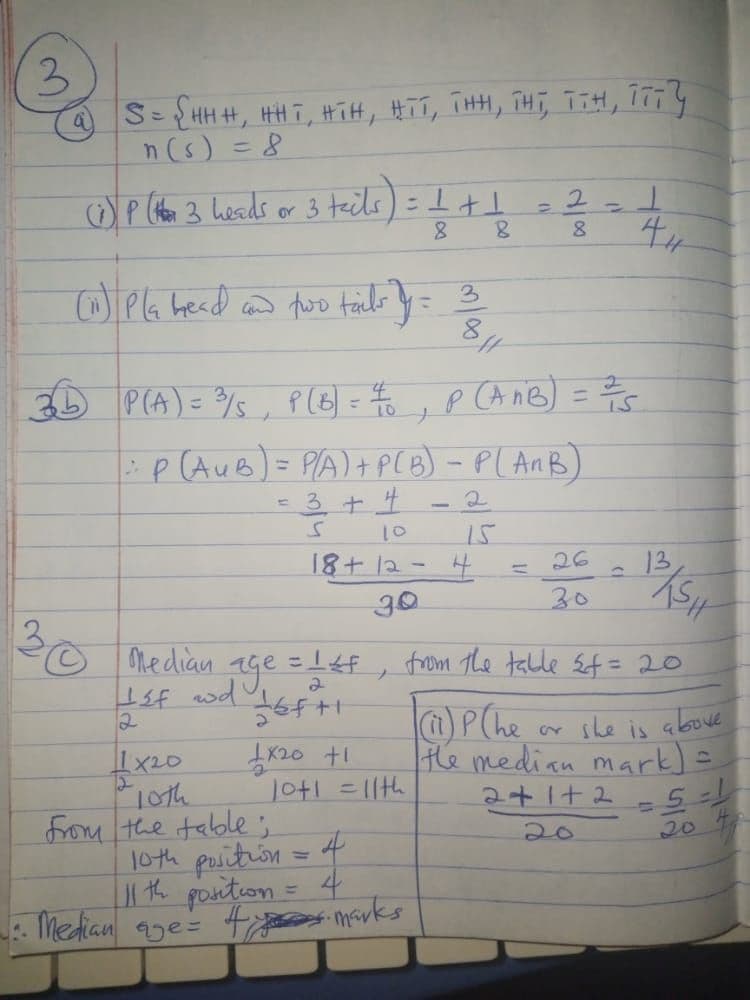 3
(a) S = {HHH, HHT, HTH, HTT, THH, THT, TTH, TTT}
n(s) = 8
(i) P(3 heads or 3 tails) = 1/8 + 1/8 = 2/8 = 1/4 //
(ii) P(a head and two tails} = 3/8 //
3(b) P(A) = 3/5, P(B) = 4/10, P(A∩B) = 2/15
∴ P(A∪B) = P(A) + P(B) - P(A∩B)
= 3/5 + 4/10 - 2/15
(18 + 12 - 4)/30 = 26/30 = 13/15 //
3(c) Median age = 1/2 Σf, from the table Σf = 20
1/2 Σf and 1/2 Σf + 1
1/2 × 20 1/2 × 20 + 1
10th 10+1 = 11th
From the table;
10th position = 4
11th position = 4
∴ Median age = 4 marks
(ii) P(he or she is above
the median mark) =
(2 + 1 + 2)/20 = 5/20 = 1/4 //